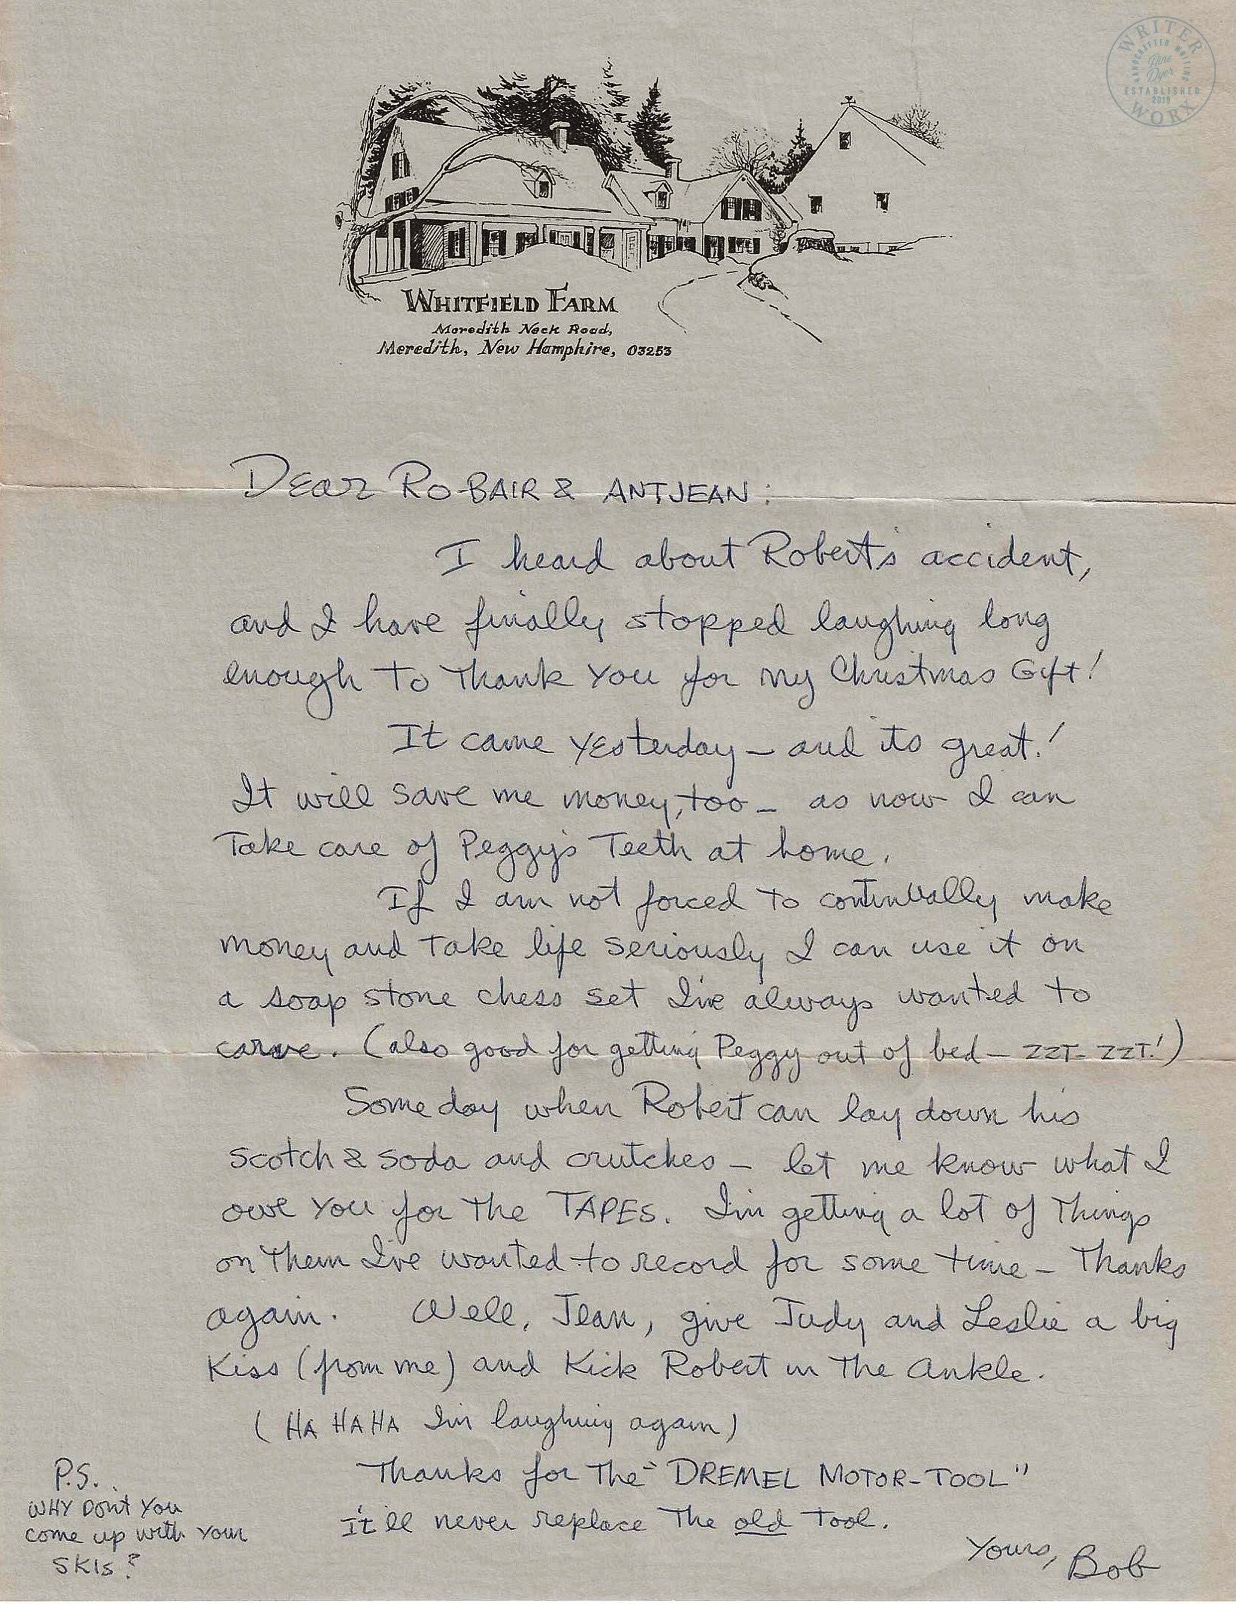 WRITER
HANDCRAFTED WRITING
Pine
Dyer
ESTABLISHED
2019
WORX
WHITFIELD FARM
Meredith Neck Road,
Meredith, New Hamphire, 03253
Dear RO-BAIR & ANTJEAN:
I heard about Robert's accident,
and I have finally stopped laughing long
enough to Thank You for my Christmas Gift!
It came yesterday – and its great!
It will save me money, too – as now I can
Take care of Peggy's Teeth at home.
If I am not forced to continually make
money and take life seriously I can use it on
a soap stone chess set I've always wanted to
carve. (also good for getting Peggy out of bed – ZZT- ZZT!)
Some day when Robert can lay down his
scotch & soda and crutches – let me know what I
owe you for the TAPES. I'm getting a lot of Things
on Them I've wanted to record for some time – Thanks
again. Well, Jean, give Judy and Leslie a big
Kiss (from me) and Kick Robert in The Ankle.
(HA HA HA I'm laughing again)
Thanks for The "DREMEL MOTOR-TOOL"
It'll never replace The old Tool.
Yours, Bob
P.S.
WHY DON'T YOU
come up with your
SKIS?